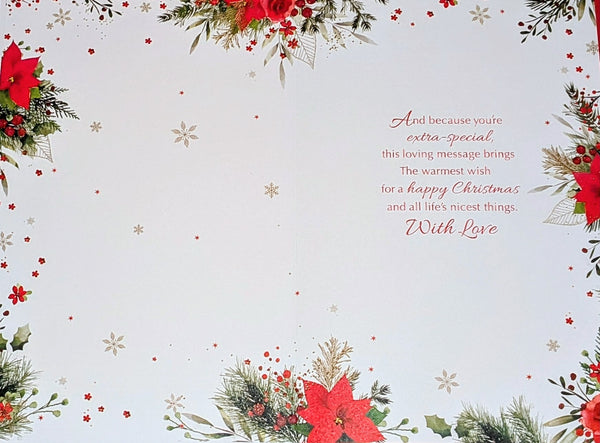 And because you're
extra-special,
this loving message brings
The warmest wish
for a happy Christmas
and all life's nicest things.
With Love